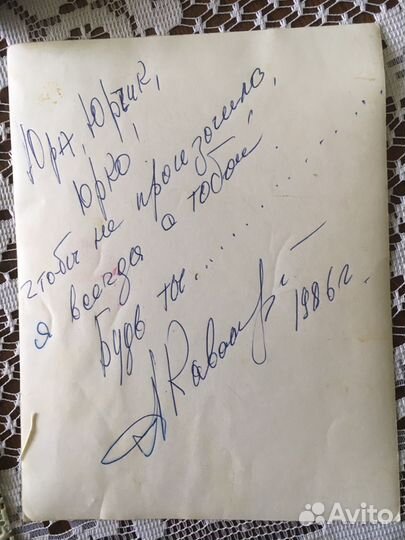 Юра, Юрчик,
Юрко,
чтобы не произошло,
я всегда с тобой
Будь ты..............
1986 г.
Avito